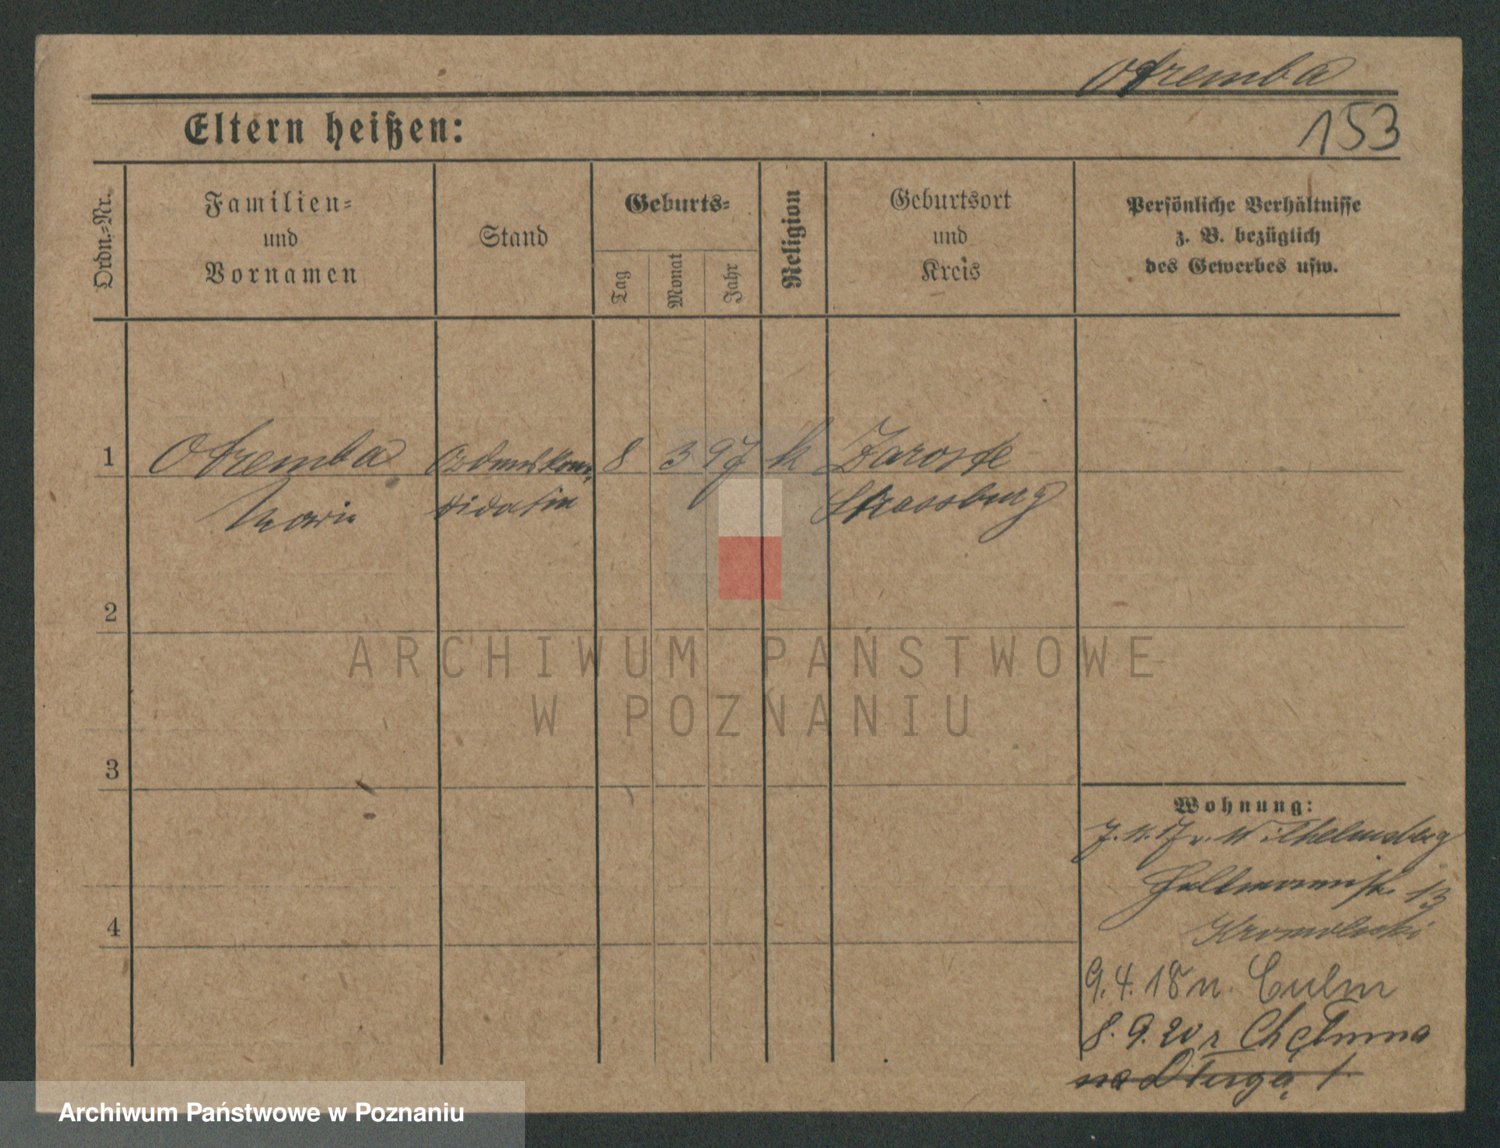 Otremba
Eltern heißen:
153
Ordn.-Nr.
Familien-
und
Vornamen
Stand
Geburts-
Tag
Monat
Jahr
Religion
Geburtsort
und
Kreis
Persönliche Verhältnisse
z. B. bezüglich
des Gewerbes usw.
1
Otremba
8
3
97
k
Marie
Strassburg
2
ARCHIWUM PAŃSTWOWE
W POZNANIU
3
Wohnung:
v. Wilhelmsberg
13
4
9.4.18 n. Culm
8.9.20 Chełmna
na Długą 1
Archiwum Państwowe w Poznaniu